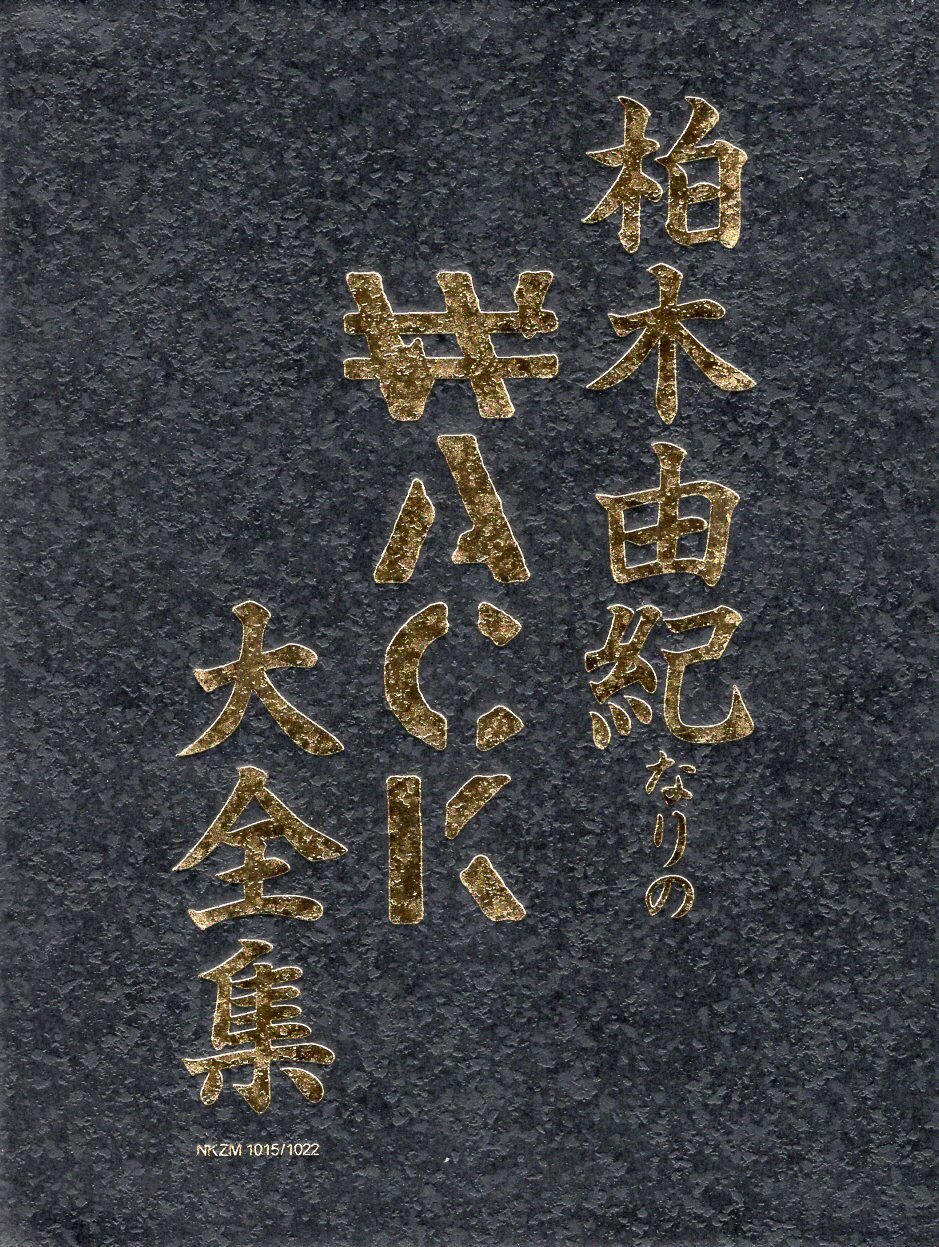 柏木由紀なりの
WACK
大全集
NKZM 1015/1022